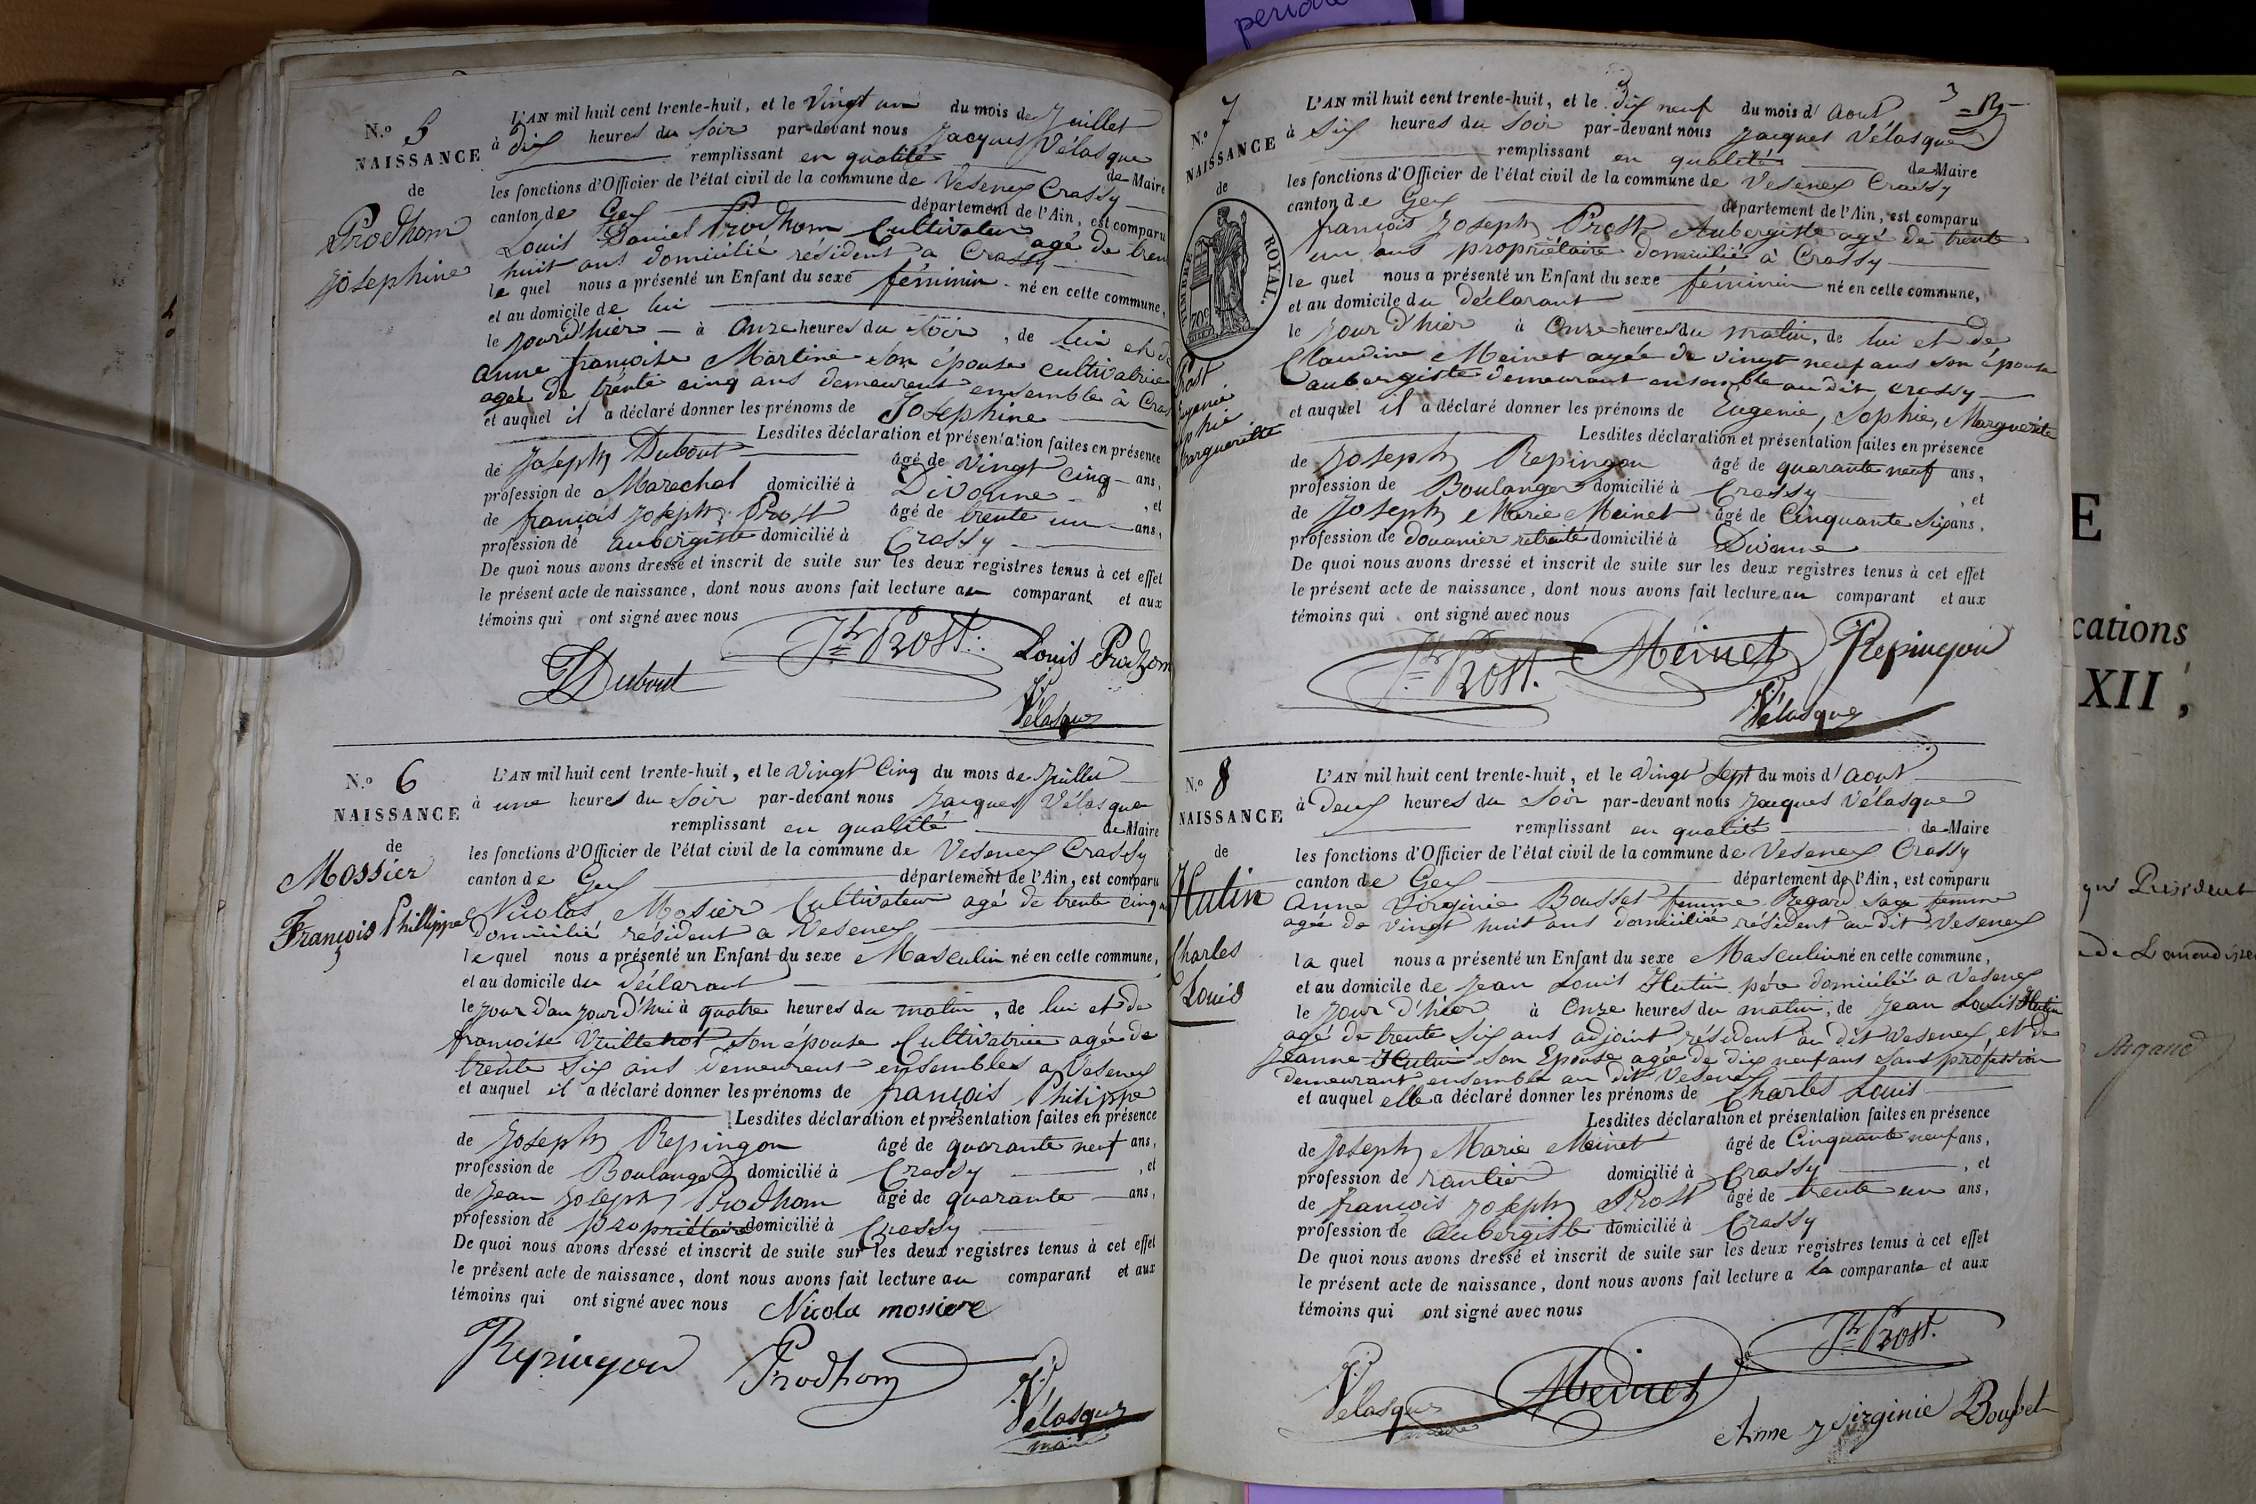 N.o 5
NAISSANCE
de
Prodhom
Josephine
L'AN mil huit cent trente-huit, et le vingt un du mois de Juillet
à dix heures du soir par-devant nous Jacques Vélasque
remplissant en qualité de Maire
les fonctions d'Officier de l'état civil de la commune de Vesenex Crassy
canton de Gex département de l'Ain, est comparu
Louis Daniel Prodhom Cultivateur agé de tren
huit ans domicilié résident a Crassy
le quel nous a présenté un Enfant du sexe féminin né en cette commune,
et au domicile de lui
le jour d'hier à onze heures du soir, de lui et de
anne françoise Martine son épouse cultivatrice
agée de trente cinq ans demeurent ensemble à Cras
et auquel il a déclaré donner les prénoms de Josephine
Lesdites déclaration et présentation faites en présence
de Joseph Dubout âgé de vingt cinq ans,
profession de Marechal domicilié à Divonne, et
de francois Joseph Prost âgé de trente un ans,
profession de aubergiste domicilié à Crassy
De quoi nous avons dressé et inscrit de suite sur les deux registres tenus à cet effet
le présent acte de naissance, dont nous avons fait lecture au comparant et aux
témoins qui ont signé avec nous
Jh Prost.
Louis Prodhom
Dubout
Vélasque
N.o 6
NAISSANCE
de
Mossier
François Phillippe
L'AN mil huit cent trente-huit, et le vingt Cinq du mois de Juillet
à une heures du soir par-devant nous Jacques Vélasque
remplissant en qualité de Maire
les fonctions d'Officier de l'état civil de la commune de Vesenex Crassy
canton de Gex département de l'Ain, est comparu
Nicolas Mosier Cultivateur agé de trente cinq
domicilié résident a Vesenex
le quel nous a présenté un Enfant du sexe Masculin né en cette commune,
et au domicile du déclarant
le jour d'au jour d'hui à quatre heures du matin, de lui et de
francoise Vuillenot son épouse Cultivatrice agée de
trente six ans demeurent ensembles a Vesenex
et auquel il a déclaré donner les prénoms de françois Philippe
Lesdites déclaration et présentation faites en présence
de Joseph Repingon âgé de quarante neuf ans,
profession de Boulanger domicilié à Crassy, et
de Jean Joseph Prodhom âgé de quarante ans,
profession de propriétaire domicilié à Crassy
De quoi nous avons dressé et inscrit de suite sur les deux registres tenus à cet effet
le présent acte de naissance, dont nous avons fait lecture au comparant et aux
témoins qui ont signé avec nous Nicola mossiere
Repingon
Prodhom
Vélasque
maire
N.o 7
NAISSANCE
de
TIMBRE ROYAL.
70c
Prost
Eugenie
Sophie
Margueritte
3
L'AN mil huit cent trente-huit, et le dix neuf du mois d'Aout
à six heures du soir par-devant nous Jacques Vélasque
remplissant en qualité de Maire
les fonctions d'Officier de l'état civil de la commune de Vesenex Crassy
canton de Gex département de l'Ain, est comparu
françois Joseph Prost Aubergiste agé de trente
un ans propriétaire domicilié à Crassy
le quel nous a présenté un Enfant du sexe féminin né en cette commune,
et au domicile du déclarant
le jour d'hier à onze heures du matin, de lui et de
Claudine Meinet agée de vingt neuf ans son épouse
aubergiste demeurant ensemble au dit crassy
et auquel il a déclaré donner les prénoms de Eugenie, Sophie, Marguerite
Lesdites déclaration et présentation faites en présence
de Joseph Repingon âgé de quarante neuf ans,
profession de Boulanger domicilié à Crassy, et
de Joseph Marie Meinet âgé de Cinquante six ans,
profession de douanier retraité domicilié à Divonne
De quoi nous avons dressé et inscrit de suite sur les deux registres tenus à cet effet
le présent acte de naissance, dont nous avons fait lecture au comparant et aux
témoins qui ont signé avec nous
Jh Prost.
Meinet
Repingon
Vélasque
N.o 8
NAISSANCE
de
Hutin
Charles
Louis
L'AN mil huit cent trente-huit, et le vingt Sept du mois d'aout
à deux heures du soir par-devant nous Jacques Vélasque
remplissant en qualité de Maire
les fonctions d'Officier de l'état civil de la commune de Vesenex Crassy
canton de Gex département de l'Ain, est comparu
Anna Virginie Bousset femme Regard sage femme
agée de vingt huit ans domiciliée résident au dit Vesenex
la quel nous a présenté un Enfant du sexe Masculin né en cette commune,
et au domicile de Jean Louis Hutin père domicilié a Vesenex
le jour d'hier à onze heures du matin, de Jean Louis Hutin
agé de trente six ans adjoint résident au dit Vesenex, et de
Jeanne Hutin son Epouse agée de dix neuf ans sans proféssion
demeurant ensemble au dit Vesenex
et auquel elle a déclaré donner les prénoms de Charles Louis
Lesdites déclaration et présentation faites en présence
de Joseph Marie Meinet âgé de Cinquante neuf ans,
profession de rantier domicilié à Crassy, et
de francois Joseph Prost âgé de trente un ans,
profession de Aubergiste domicilié à Crassy
De quoi nous avons dressé et inscrit de suite sur les deux registres tenus à cet effet
le présent acte de naissance, dont nous avons fait lecture a la comparante et aux
témoins qui ont signé avec nous
Jh Prost.
Vélasque
maire
Meinet
Anne Virginie Bousset
E
cations
XII,
President